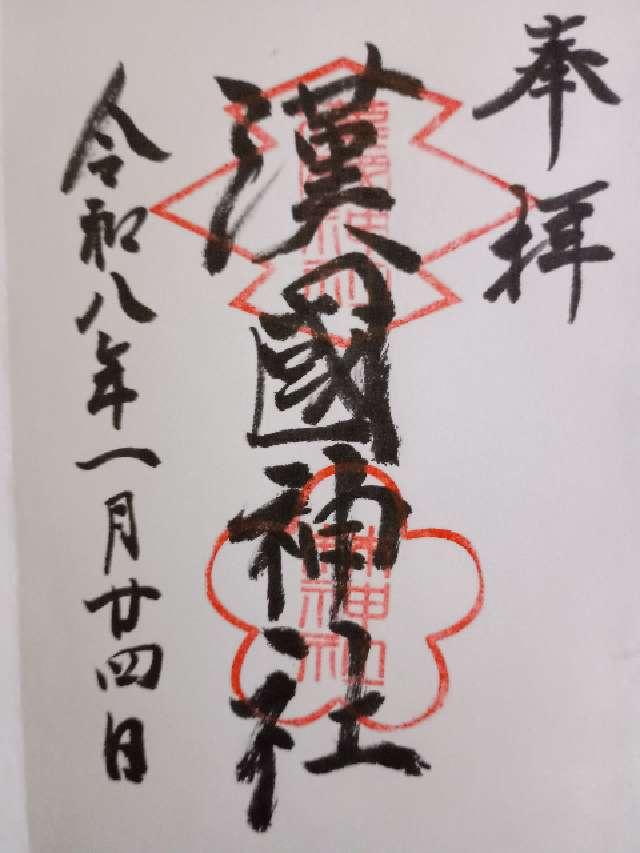 奉拝
漢國神社
令和八年一月廿四日
林神社